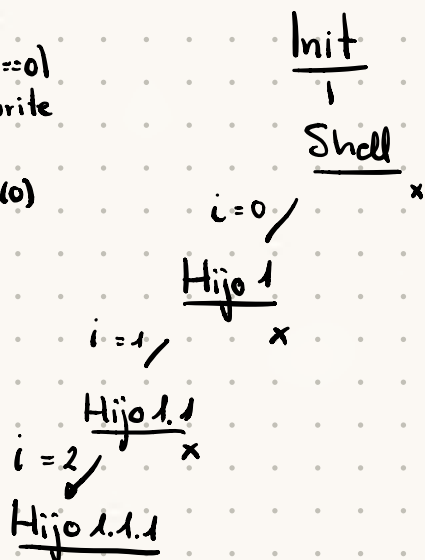 Init
==0)
rite
Shell
(0)
x
i=0
Hijo 1
x
i=1
Hijo 1.1
x
i=2
Hijo 1.1.1